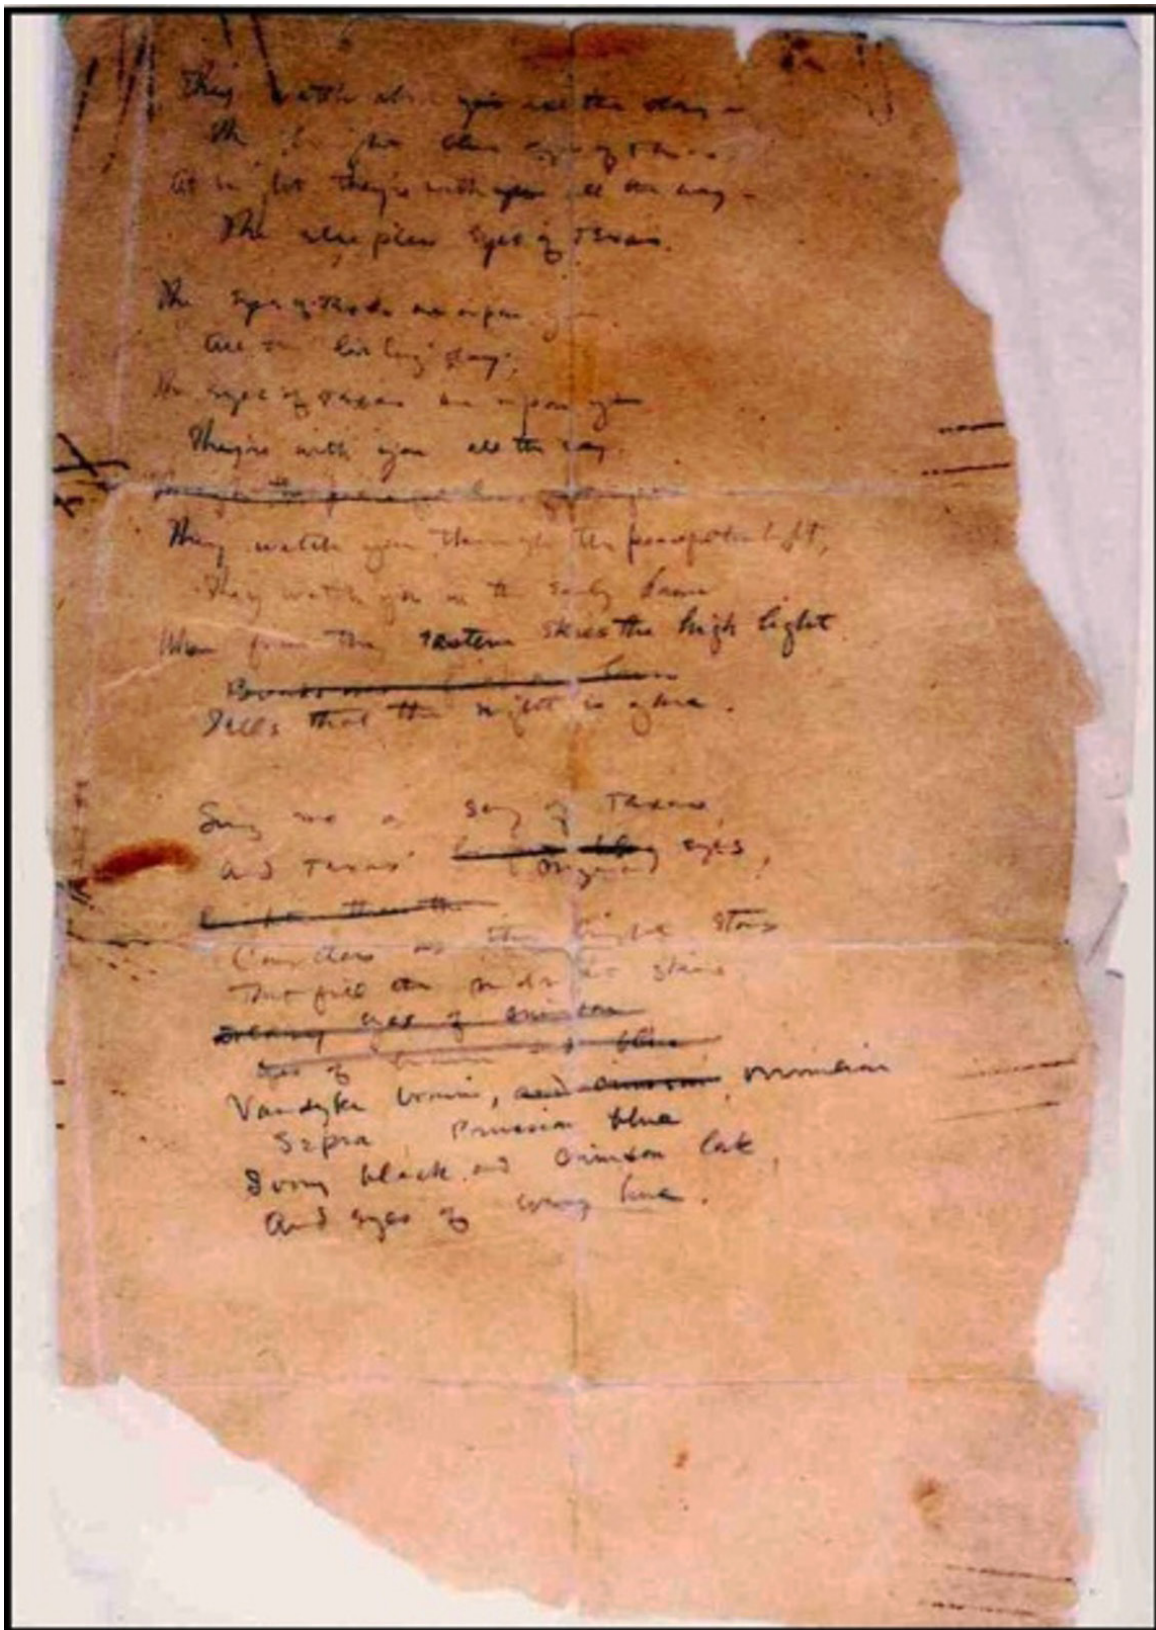 They watch above you all the day -
The bright blue eyes of Texas.
At night they're with you all the way -
The sleepless Eyes of Texas.
The Eyes of Texas are upon you.
All the live long day;
The Eyes of Texas are upon you
They're with you all the way.
They watch you through the peaceful night,
They watch you in the early dawn
When from the eastern skies the high light
Tells that the night is gone.
Sing me a song of Texas,
And Texas' myriad eyes,
Countless as the bright stars
That fill the midnight skies
Vandyke brown, and crimson, vermilion
Sepia, Prussian blue
Ivory black and crimson lake
And eyes of every hue.